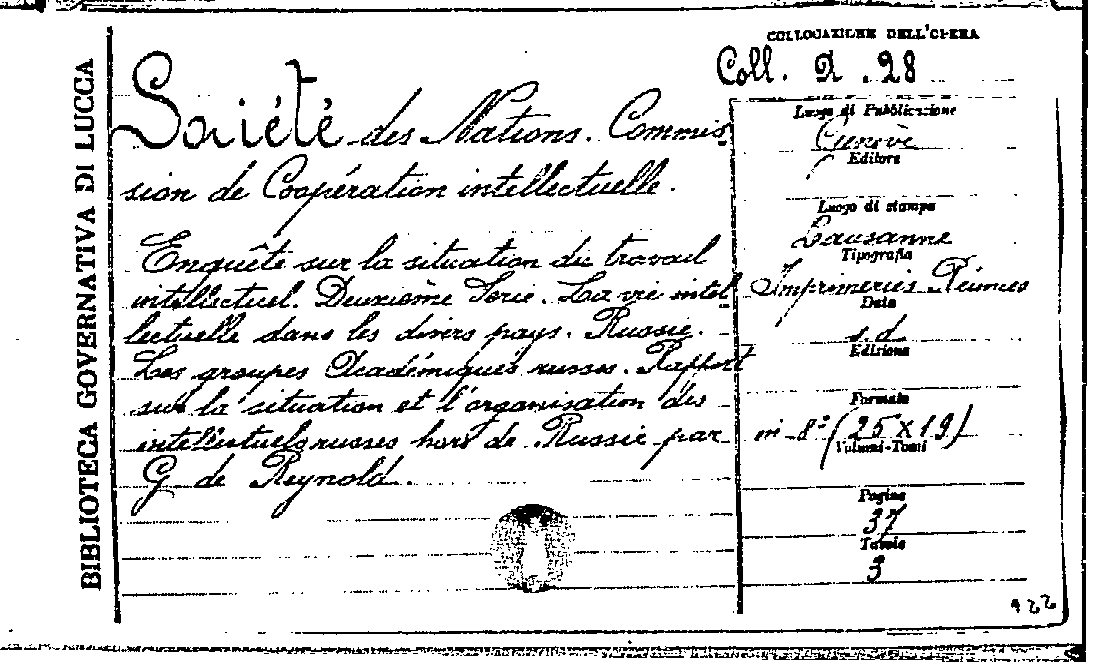 BIBLIOTECA GOVERNATIVA DI LUCCA
Société des Nations. Commis-
sion de Coopération intellectuelle.
Enquête sur la situation du travail
intellectuel. Deuxième Serie. La vie intel
lectuelle dans les divers pays. Russie.
Les groupes Académiques russes. Rapport
sur la situation et l'organisation des
intellectuels russes hors de Russie par
G de Reynold.
COLLOCAZIONE DELL'OPERA
Coll. A . 28
Luogo di Pubblicazione
Genève
Editore
Luogo di stampa
Lausanne
Tipografia
Imprimeries Réunies
Data
s.d
Edizione
Formato
in-8° (25 x 19)
Volumi-Tomi
Pagine
37
Tavole
3
422